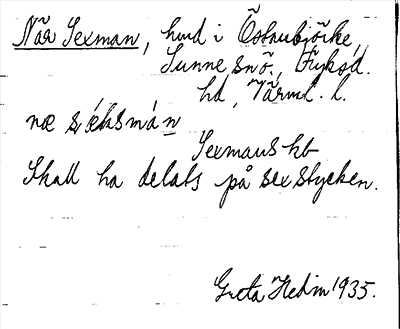 När Sexman, hmd i Östanbjörke,
Sunne snö., Fryksd.
hd, Värml. l.
næ sæksmán
Sexmans hb
Skall ha delats på sex stycken.
Greta Hedin 1935.